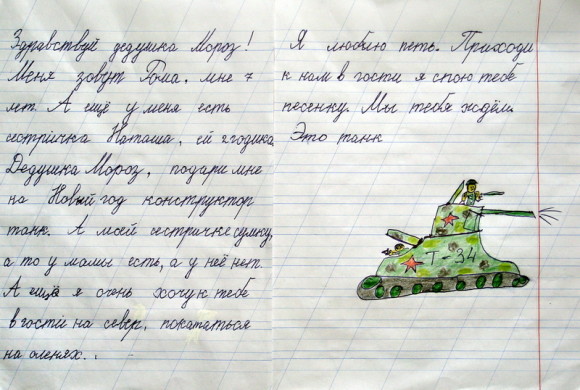 Здравствуй дедушка Мороз!
Меня зовут Рома, мне 7
лет. А ещё у меня есть
сестричка Наташа, ей 2 годика.
Дедушка Мороз, подари мне
на Новый год конструктор
танк. А моей сестричке сумку,
а то у мамы есть, а у неё нет.
А ещё я очень хочу к тебе
в гости на север, покататься
на оленях..
Я люблю петь. Приходи
к нам в гости я спою тебе
песенку. Мы тебя ждём.
Это танк
Т-34